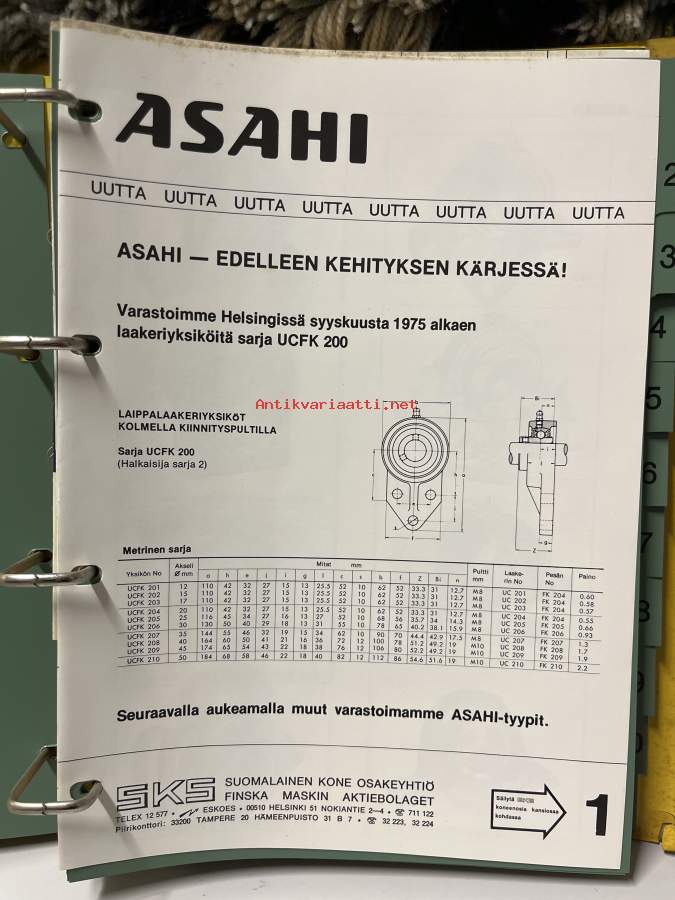 ASAHI
UUTTA UUTTA UUTTA UUTTA UUTTA UUTTA UUTTA UUTTA
ASAHI — EDELLEEN KEHITYKSEN KÄRJESSÄ!
Varastoimme Helsingissä syyskuusta 1975 alkaen
laakeriyksiköitä sarja UCFK 200
Antikvariaatti.net
LAIPPALAAKERIYKSIKÖT
KOLMELLA KIINNITYSPULTILLA
Sarja UCFK 200
(Halkaisija sarja 2)
Metrinen sarja
Yksikön No Akseli Ø mm Mitat mm Pultti mm Laake-rin No Pesän No Paino
a h e i l g s Z Bi n
UCFK 201 12 110 42 32 27 15 13 25.5 52 10 62 52 33.3 31 12.7 M8 UC 201 FK 204 0.60
UCFK 202 15 110 42 32 27 15 13 25.5 52 10 62 52 33.3 31 12.7 M8 UC 202 FK 204 0.58
UCFK 203 17 110 42 32 27 15 13 25.5 52 10 62 52 33.3 31 12.7 M8 UC 203 FK 204 0.57
UCFK 204 20 110 42 32 27 15 13 25.5 52 10 62 52 33.3 31 12.7 M8 UC 204 FK 204 0.55
UCFK 205 25 116 45 34 27 16 13 27 52 10 68 56 35.7 34 14.3 M8 UC 205 FK 205 0.66
UCFK 206 30 130 50 40 29 18 13 31 55 10 78 65 40.2 38.1 15.9 M8 UC 206 FK 206 0.93
UCFK 207 35 144 55 46 32 19 15 34 62 10 90 70 44.4 42.9 17.5 M8 UC 207 FK 207 1.3
UCFK 208 40 164 60 50 41 21 16 36 72 12 100 78 51.2 49.2 19 M10 UC 208 FK 208 1.7
UCFK 209 45 174 65 54 43 22 18 38 76 12 106 80 52.2 49.2 19 M10 UC 209 FK 209 1.9
UCFK 210 50 184 68 58 46 22 18 40 82 12 112 86 54.6 51.6 19 M10 UC 210 FK 210 2.2
Seuraavalla aukeamalla muut varastoimamme ASAHI-tyypit.
SKS SUOMALAINEN KONE OSAKEYHTIÖ
FINSKA MASKIN AKTIEBOLAGET
TELEX 12 577 • ESKOES • 00510 HELSINKI 51 NOKIANTIE 2—4 • ☎ 711 122
Piirikonttori: 33200 TAMPERE 20 HÄMEENPUISTO 31 B 7 • ☎ 32 223, 32 224
Säilytä SKS
koneenosia kansiossa
kohdassa
1
2
3
4
5
6
7
8
9
0